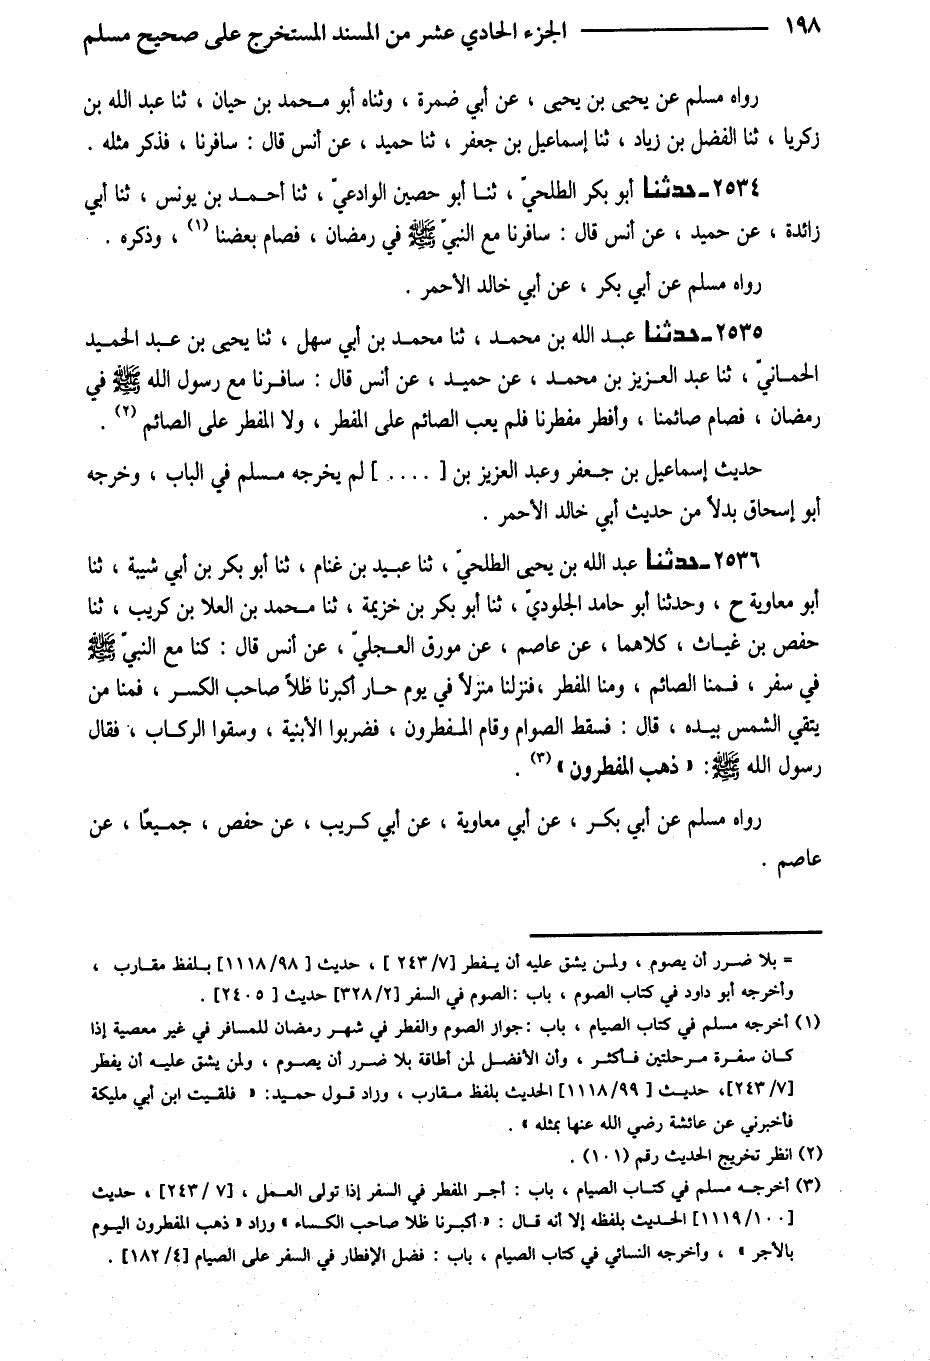 ١٩٨ ـــــــــ الجزء الحادي عشر من المسند المستخرج على صحيح مسلم
رواه مسلم عن يحيى بن يحيى ، عن أبي ضمرة ، وثناه أبو محمد بن حيان ، ثنا عبد الله بن
زكريا ، ثنا الفضل بن زياد ، ثنا إسماعيل بن جعفر ، ثنا حميد ، عن أنس قال : سافرنا ، فذكر مثله .
٢٥٣٤ـ حدثنا أبو بكر الطلحيّ ، ثنا أبو حصين الوادعيّ ، ثنا أحمد بن يونس ، ثنا أبي
زائدة ، عن حميد ، عن أنس قال : سافرنا مع النبيّ ﷺ في رمضان ، فصام بعضنا (١) ، وذكره .
رواه مسلم عن أبي بكر ، عن أبي خالد الأحمر .
٢٥٣٥ـ حدثنا عبد الله بن محمد ، ثنا محمد بن أبي سهل ، ثنا يحيى بن عبد الحميد
الحمانيّ ، ثنا عبد العزيز بن محمد ، عن حميد ، عن أنس قال : سافرنا مع رسول الله ﷺ في
رمضان ، فصام صائمنا ، وأفطر مفطرنا فلم يعب الصائم على المفطر ، ولا المفطر على الصائم (٢) .
حديث إسماعيل بن جعفر وعبد العزيز بن [ .... ] لم يخرجه مسلم في الباب ، وخرجه
أبو إسحاق بدلاً من حديث أبي خالد الأحمر .
٢٥٣٦ـ حدثنا عبد الله بن يحيى الطلحيّ ، ثنا عبيد بن غنام ، ثنا أبو بكر بن أبي شيبة ، ثنا
أبو معاوية ح ، وحدثنا أبو حامد الجلوديّ ، ثنا أبو بكر بن خزيمة ، ثنا محمد بن العلا بن كريب ، ثنا
حفص بن غياث ، كلاهما ، عن عاصم ، عن مورق العجليّ ، عن أنس قال : كنا مع النبيّ ﷺ
في سفر ، فمنا الصائم ، ومنا المفطر ،فنزلنا منزلاً في يوم حار أكبرنا ظلاً صاحب الكسر ، فمنا من
يتقي الشمس بيده ، قال : فسقط الصوام وقام المفطرون ، فضربوا الأبنية ، وسقوا الركاب ، فقال
رسول الله ﷺ : « ذهب المفطرون » (٣) .
رواه مسلم عن أبي بكر ، عن أبي معاوية ، عن أبي كريب ، عن حفص ، جميعًا ، عن
عاصم .
= بلا ضرر أن يصوم ، ولمن يشق عليه أن يفطر [٧/ ٢٤٣ ] ، حديث [ ٩٨/ ١١١٨] بلفظ مقارب ،
وأخرجه أبو داود في كتاب الصوم ، باب :الصوم في السفر [٣٢٨/٢] حديث [ ٢٤٠٥] .
(١) أخرجه مسلم في كتاب الصيام ، باب :جواز الصوم والفطر في شهر رمضان للمسافر في غير معصية إذا
كان سفرة مرحلتين فأكثر ، وأن الأفضل لمن أطاقة بلا ضرر أن يصوم ، ولمن يشق عليه أن يفطر
[٧/ ٢٤٣]، حديث [ ٩٩/ ١١١٨] الحديث بلفظ مقارب ، وزاد قول حميد: « فلقيت ابن أبي مليكة
فأخبرني عن عائشة رضي الله عنها بمثله » .
(٢) انظر تخريج الحديث رقم (١٠١) .
(٣) أخرجه مسلم في كتاب الصيام ، باب : أجر المفطر في السفر إذا تولى العمل ، [٧ /٢٤٣] ، حديث
[١٠٠/ ١١١٩] الحديث بلفظه إلا أنه قال : « أكبرنا ظلا صاحب الكساء » وزاد « ذهب المفطرون اليوم
بالأجر » ، وأخرجه النسائي في كتاب الصيام ، باب : فضل الإفطار في السفر على الصيام [٤/ ١٨٢] .